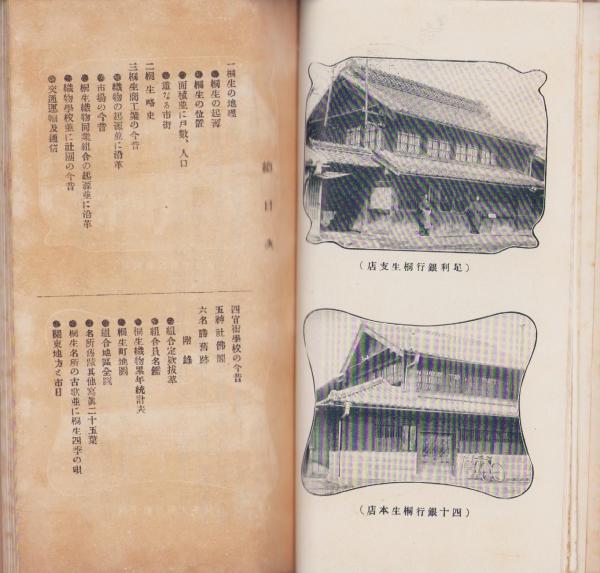 總目次
一桐生の地理
●桐生の起源
●桐生の位置
●面積並に戸數、人口
●重なる市街
二桐生略史
三桐生商工業の今昔
●織物の起源並に沿革
●市場の今昔
●桐生織物同業組合の起源並に沿革
●織物學校並に社團の今昔
●交通運輸及通信
四官衙學校の今昔
五神社佛閣
六名勝舊跡
附錄
●組合定欵拔萃
●組合員名鑑
●桐生織物累年統計表
●桐生町地圖
●組合地區全圖
●名所舊蹟其他寫眞二十五葉
●桐生名所の古歌並に桐生四季の唄
●關東地方と市日
(足利銀行桐生支店)
(四十銀行桐生本店)